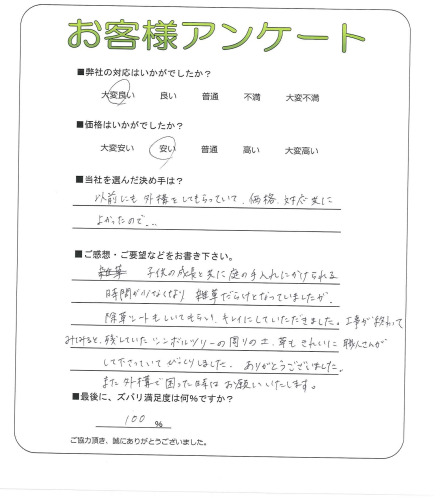 お客様アンケート
■弊社の対応はいかがでしたか？
大変良い 良い 普通 不満 大変不満
■価格はいかがでしたか？
大変安い 安い 普通 高い 大変高い
■当社を選んだ決め手は？
以前にも外構をしてもらっていて、価格、対応共に
よかったので…
■ご感想・ご要望などをお書き下さい。
雑草 子供の成長と共に庭の手入れにかけられる
時間が少なくなり 雑草だらけとなっていましたが、
除草シートもしいてもらい、キレイにしていただきました。工事が終わって
みてみると、残していたシンボルツリーの周りの土、草もきれいに 職人さんが
して下さっていて びっくりしました。ありがとうございました。
また外構で困った時は お願いいたします。
■最後に、ズバリ満足度は何％ですか？
100 %
ご協力頂き、誠にありがとうございました。